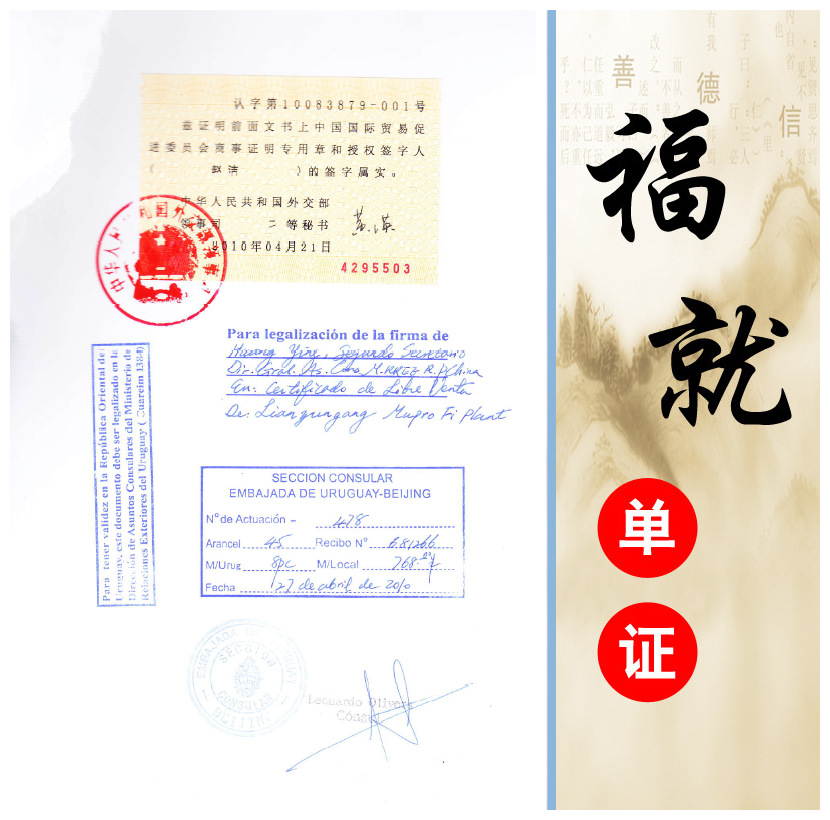 认字第10083879-001号
兹证明前面文书上中国国际贸易促
进委员会商事证明专用章和授权签字人
( 赵洁 )的签字属实。
中华人民共和国外交部
领事司 二等秘书
2010年04月21日
4295503
Para legalización de la firma de
Huang Ying, Segundo Secretario
En: Certificado de Libre Venta
De: Lianyungang Mupro Fi Plant
Para tener validez en la República Oriental del
Uruguay, este documento debe ser legalizado en la
Dirección de Asuntos Consulares del Ministerio de
Relaciones Exteriores del Uruguay (Cuareim 1384)
SECCION CONSULAR
EMBAJADA DE URUGUAY-BEIJING
Nº de Actuación - 478
Arancel 45 Recibo Nº
M/Urug M/Local 768
Fecha 27 de abril de 2010
EMBAJADA DE URUGUAY
SECCION
CONSULAR
BEIJING
Leonardo Olivera
Cónsul
善
德
信
福
就
单
证